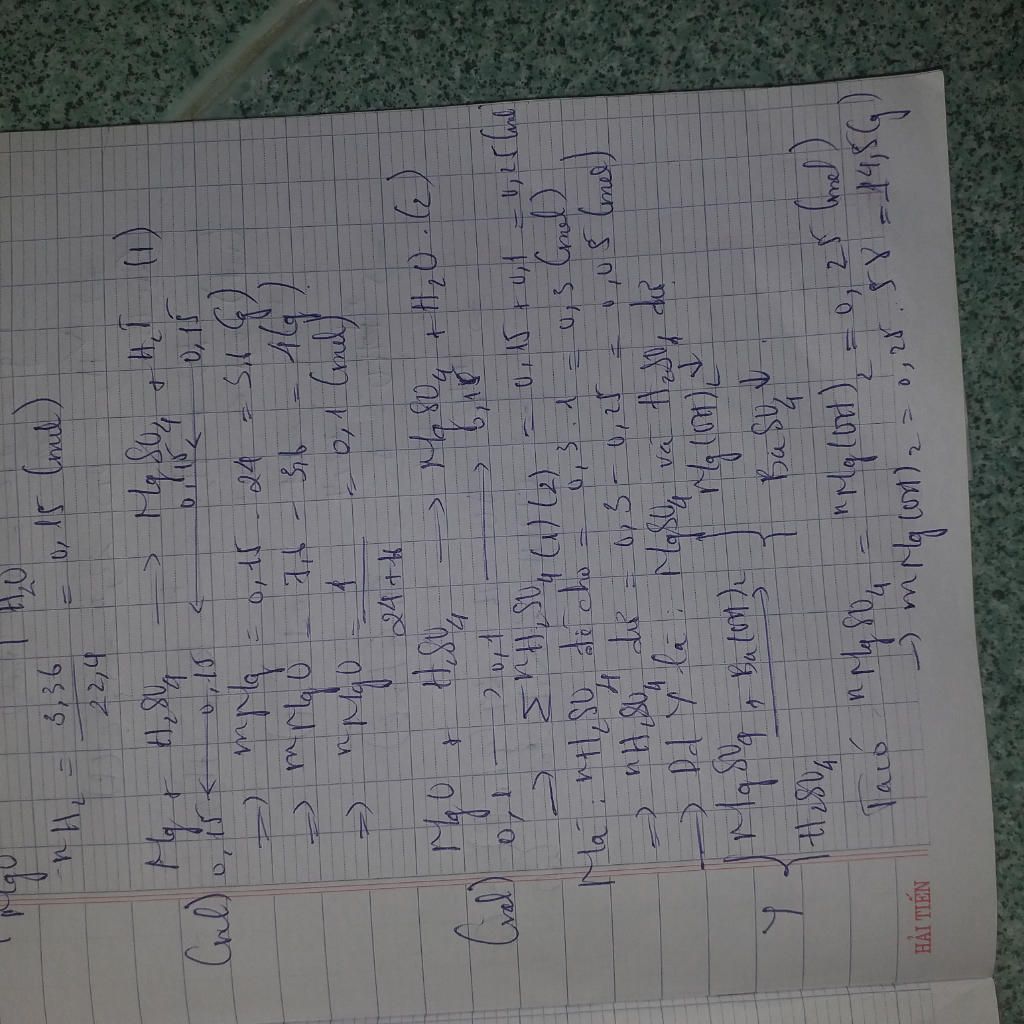 MgO | H₂O
- nH₂ = 3,36 / 22,4 = 0,15 (mol)
Mg + H₂SO₄ → MgSO₄ + H₂↑ (1)
(mol) 0,15 ← 0,15 ← 0,15 ← 0,15
=> mMg = 0,15 . 24 = 3,6 (g)
=> mMgO = 7,6 - 3,6 = 4 (g)
=> nMgO = 4 / 24+16 = 0,1 (mol)
MgO + H₂SO₄ → MgSO₄ + H₂O. (2)
(mol) 0,1 → 0,1 → 0,15
→ ∑nH₂SO₄ (1)(2) = 0,15 + 0,1 = 0,25 (mol
Mà: nH₂SO₄ đã cho = 0,3 . 1 = 0,3 (mol)
=> nH₂SO₄ dư = 0,3 - 0,25 = 0,05 (mol)
→ Dd Y là: MgSO₄ và H₂SO₄ dư
Y { MgSO₄ + Ba(OH)₂ → } Mg(OH)₂↓
H₂SO₄ } BaSO₄↓
Ta có nMgSO₄ = nMg(OH)₂ = 0,25 (mol)
→ mMg(OH)₂ = 0,25 . 58 = 14,5 (g)
HẢI TIẾN